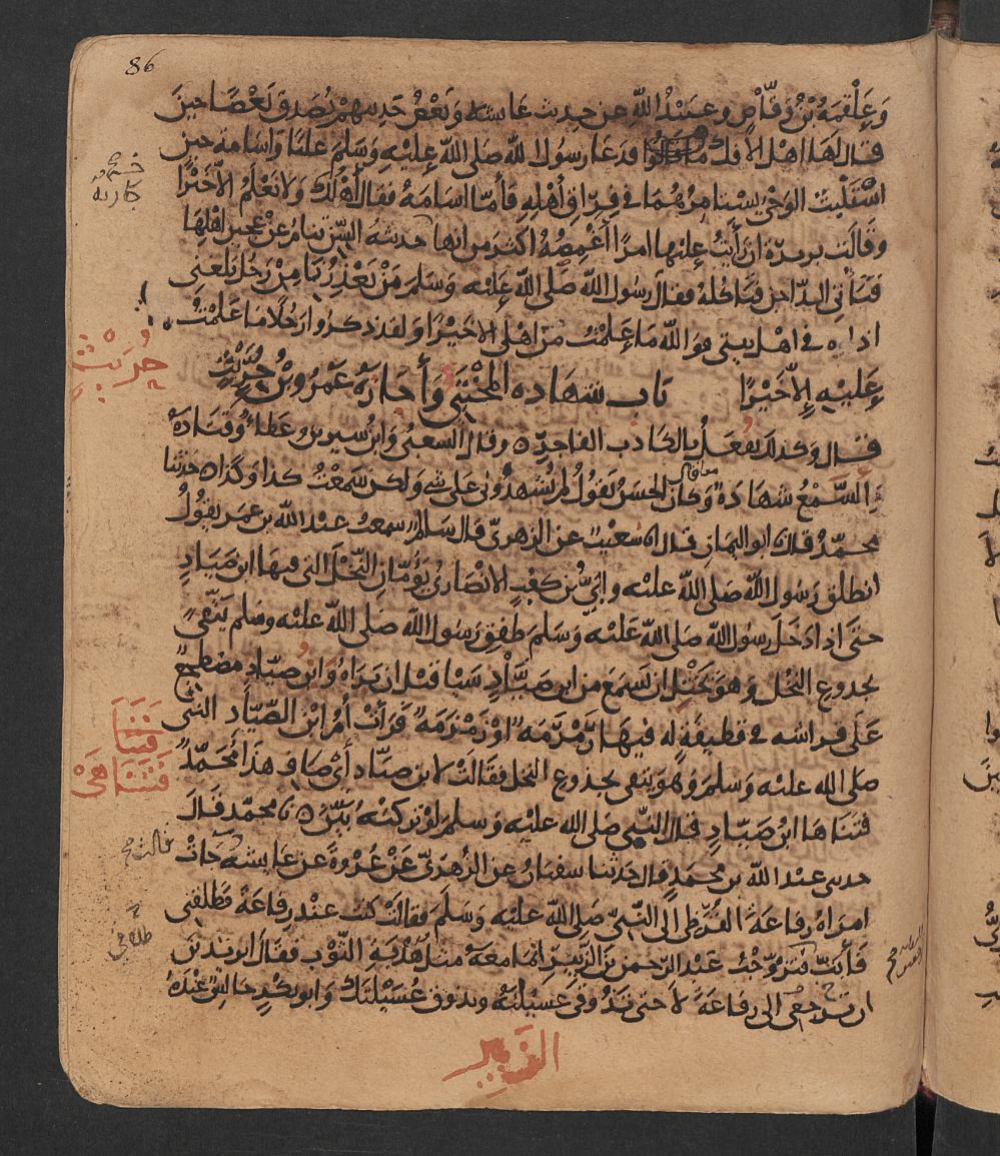 86
وَعَلْقَمَةُ بْنُ وَقَّاصٍ وعبيدُ الله عن حديث عائشة وَبَعْضُ حَديثهمْ يُصَدِّقُ بَعْضًا حينَ
قال لها اهْل الافك ما قالوا فدعا رسول الله صلى الله عليه وسلم عليًّا واسامة حين
اسْتَلْبَثَ الوَحْىُ يستامِرُهُمَا في فِرَاقِ أهْلِهِ فأمّا اسامَةُ فقال أهْلَكَ وَلا نَعْلَمُ الاّ خَيْرًا
وقالَت بريرة ان رَأيْتُ عليها امرًا أَغْمِصُهُ اكثرَ من انها حديثة السّن تنامُ عَنْ عجين اهْلِهَا
فتأتى الدّاجن فتأكلهُ فقال رسُول الله صَلى الله عليه وَسَلم مَنْ يَعْذِرُنَا مِنْ رَجُل بلغنى
اذاه في اهل بيتى فوالله مَا عَلمْتُ منْ اهْلى الا خَيْرًا وَلقد ذكرُوا رَجُلًا ما عَلمْتُ
عَلَيْهِ إِلاّ خَيْرًا بَاب شهاده المخْتَبِى وَأجَازَهُ عَمْرُو بْنُ حُرَيْثٍ
حُرَيْث
قال وَكذلك يفعَلُ بالكاذب الفاجر وقال الشعبى وَابن سيرين وعَطاء وقتادة
السَّمْعُ شهَادَة وَكان الحسَنُ يَقُولُ لم يُشهدُونى على شى وَلكن سَمعْتُ كذا وَكذا حدثنا
محمّد قال ابو اليمان قال شعيب عن الزهرىّ قال سَالم سمعت عبد الله بن عمر يقُولُ
انطلق رَسُول الله صَلى الله عليه وابىُّ بْن كعْبٍ الانْصَارىُّ يَؤُمّانِ النّخْلَ التى فيها ابن صَيّادٍ
حتى اذا دَخَلَ رسول الله صلى الله عَليه وَسَلمَ طَفِقَ رَسُول الله صَلى الله عليه وسلم يَتّقِى
بجدوع النخل وهوَ يَخْتِل ان يَسمَعَ من ابن صَيّادٍ شيا قبل ان يَرَاهُ وَابن صيّادٍ مضطجع
عَلى فراشه في قطيفَةٍ له فيهَا رَمْرَمَة اوْ زَمْزَمَة فرَأتْ أمُّ ابْن الصّيّاد النبى
صَلى الله عليه وَسلم وَهوَ يتقى بجذوع النخل فقالَتْ لابن صيّاد أىْ صَافِ هذا مُحَمّدٌ
فتَنَاهَى
فتناها ابنُ صَيّادٍ قال النّبى صَلى الله عليه وَسلم لوْ تركتْهُ بَيّنَ محمّد قالَ
حدثنى عبد الله بن محمدٍ قال حَدّثنا سفيان عن الزُهرىّ عَنْ عُرْوةَ عَن عَايشه جاتْ
قالت
امرَاة رفاعَةَ القُرَظى إلى النّبىّ صَلى الله عليه وَسَلمَ فقالَتْ كنت عنْد رفاعَةَ فطلقنى
فَأبَتّ فتزوّجتُ عَبد الرّحمن بن الزَّبير انما معهُ مثل هُدْبَةِ الثّوْب فقال اتريدين
ان ترجعى الى رفاعَة لا حتى تذُوقى عُسَيْلَتَهُ ويَذوق عُسَيْلَتَك وَابو بكرٍ جالسٌ عنْدَهُ
الزَبير